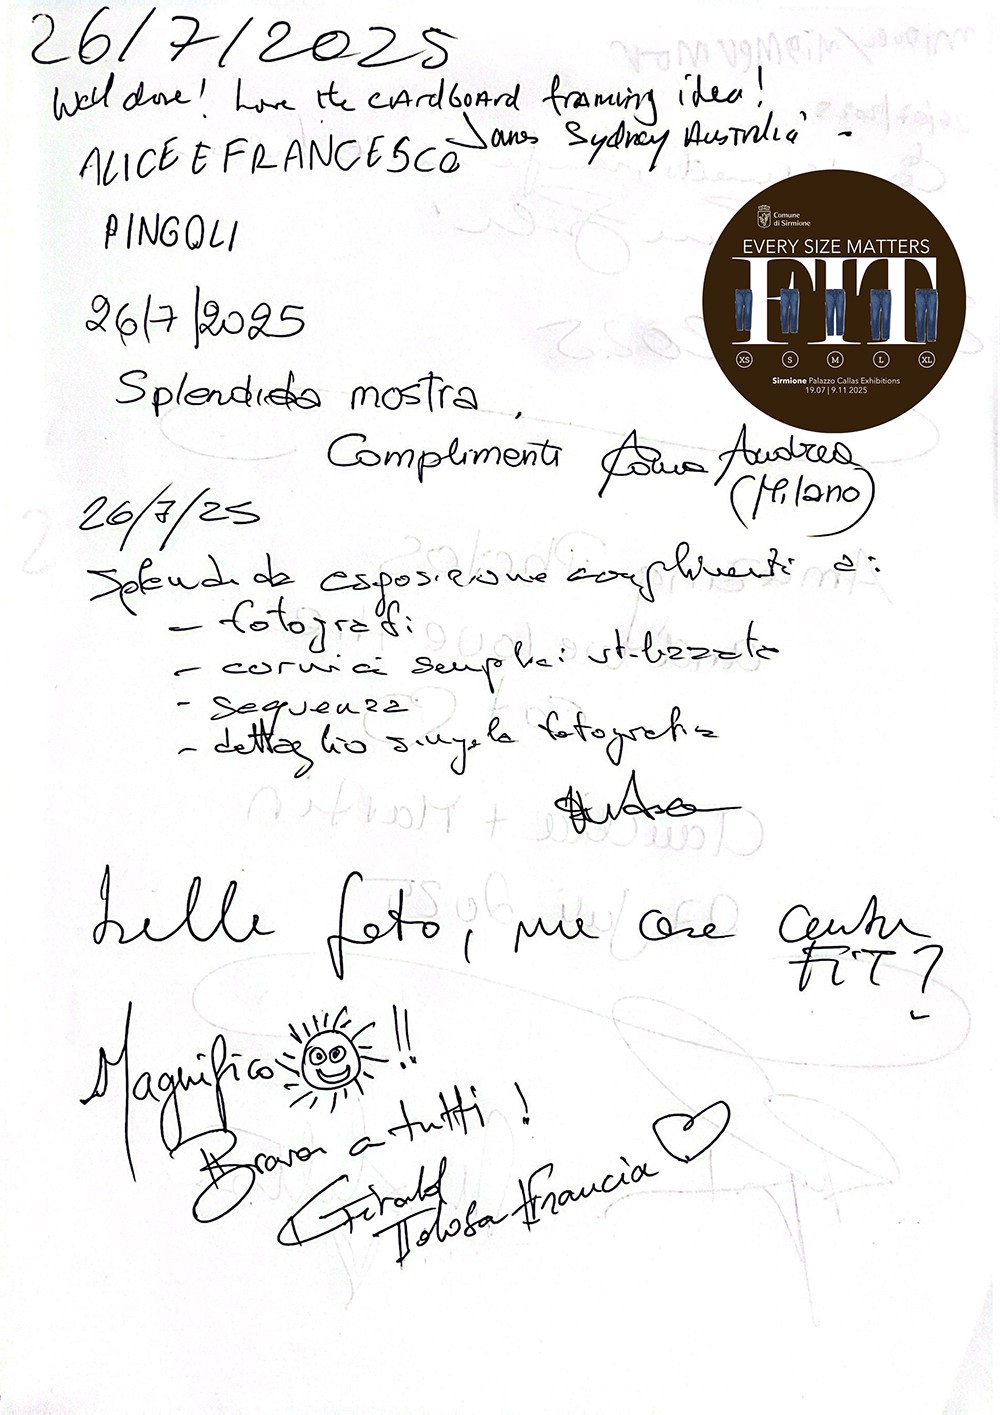 26/7/2025
Well done! Love the cardboard framing idea!
James Sydney Australia -
ALICE E FRANCESCO
PINGOLI
26/7/2025
Splendida mostra,
Complimenti Andrea
(Milano)
26/7/25
Splendida esposizione complimenti a:
- fotografi
- cornici semplici utilizzate
- sequenza
- dettaglio singola fotografia
belle foto, ma cosa centra
FIT?
Magnifico !!
Brava a tutti !
Tolosa Francia
Comune
di Sirmione
EVERY SIZE MATTERS
FIT
XS S M L XL
Sirmione Palazzo Callas Exhibitions
19.07 | 9.11 2025